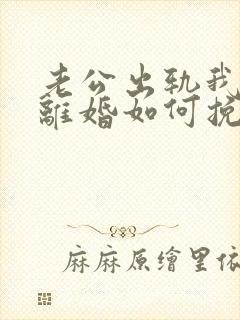 老公出轨我
離婚如何挽
麻麻原繪里依